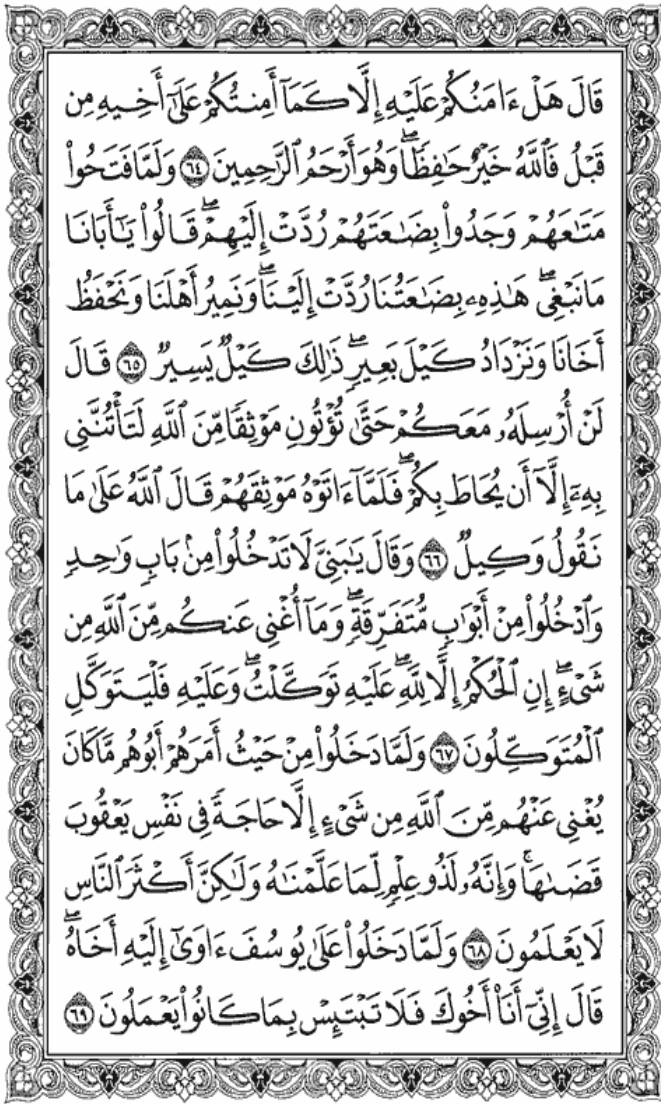 قَالَ هَلْ ءَامَنُكُمْ عَلَيْهِ إِلَّا كَمَآ أَمِنتُكُمْ عَلَىٰٓ أَخِيهِ مِن
قَبْلُ فَٱللَّهُ خَيْرٌ حَٰفِظًاۖ وَهُوَ أَرْحَمُ ٱلرَّٰحِمِينَ ٦٤ وَلَمَّا فَتَحُواْ
مَتَٰعَهُمْ وَجَدُواْ بِضَٰعَتَهُمْ رُدَّتْ إِلَيْهِمْۖ قَالُواْ يَٰٓأَبَانَا
مَا نَبْغِيۖ هَٰذِهِۦ بِضَٰعَتُنَا رُدَّتْ إِلَيْنَاۖ وَنَمِيرُ أَهْلَنَا وَنَحْفَظُ
أَخَانَا وَنَزْدَادُ كَيْلَ بَعِيرٖۖ ذَٰلِكَ كَيْلٌ يَسِيرٌ ٦٥ قَالَ
لَنْ أُرْسِلَهُۥ مَعَكُمْ حَتَّىٰ تُؤْتُونِ مَوْثِقًا مِّنَ ٱللَّهِ لَتَأْتُنَّنِي
بِهِۦٓ إِلَّآ أَن يُحَاطَ بِكُمْۖ فَلَمَّآ ءَاتَوْهُ مَوْثِقَهُمْ قَالَ ٱللَّهُ عَلَىٰ مَا
نَقُولُ وَكِيلٌ ٦٦ وَقَالَ يَٰبَنِيَّ لَا تَدْخُلُواْ مِنۢ بَابٍ وَٰحِدٍ
وَٱدْخُلُواْ مِنْ أَبْوَٰبٍ مُّتَفَرِّقَةٍۖ وَمَآ أُغْنِي عَنكُم مِّنَ ٱللَّهِ مِن
شَيْءٍۖ إِنِ ٱلْحُكْمُ إِلَّا لِلَّهِۖ عَلَيْهِ تَوَكَّلْتُۖ وَعَلَيْهِ فَلْيَتَوَكَّلِ
ٱلْمُتَوَكِّلُونَ ٦٧ وَلَمَّا دَخَلُواْ مِنْ حَيْثُ أَمَرَهُمْ أَبُوهُم مَّا كَانَ
يُغْنِي عَنْهُم مِّنَ ٱللَّهِ مِن شَيْءٍ إِلَّا حَاجَةً فِي نَفْسِ يَعْقُوبَ
قَضَىٰهَاۚ وَإِنَّهُۥ لَذُو عِلْمٍ لِّمَا عَلَّمْنَٰهُ وَلَٰكِنَّ أَكْثَرَ ٱلنَّاسِ
لَا يَعْلَمُونَ ٦٨ وَلَمَّا دَخَلُواْ عَلَىٰ يُوسُفَ ءَاوَىٰٓ إِلَيْهِ أَخَاهُۖ
قَالَ إِنِّيٓ أَنَا۠ أَخُوكَ فَلَا تَبْتَئِسْ بِمَا كَانُواْ يَعْمَلُونَ ٦٩